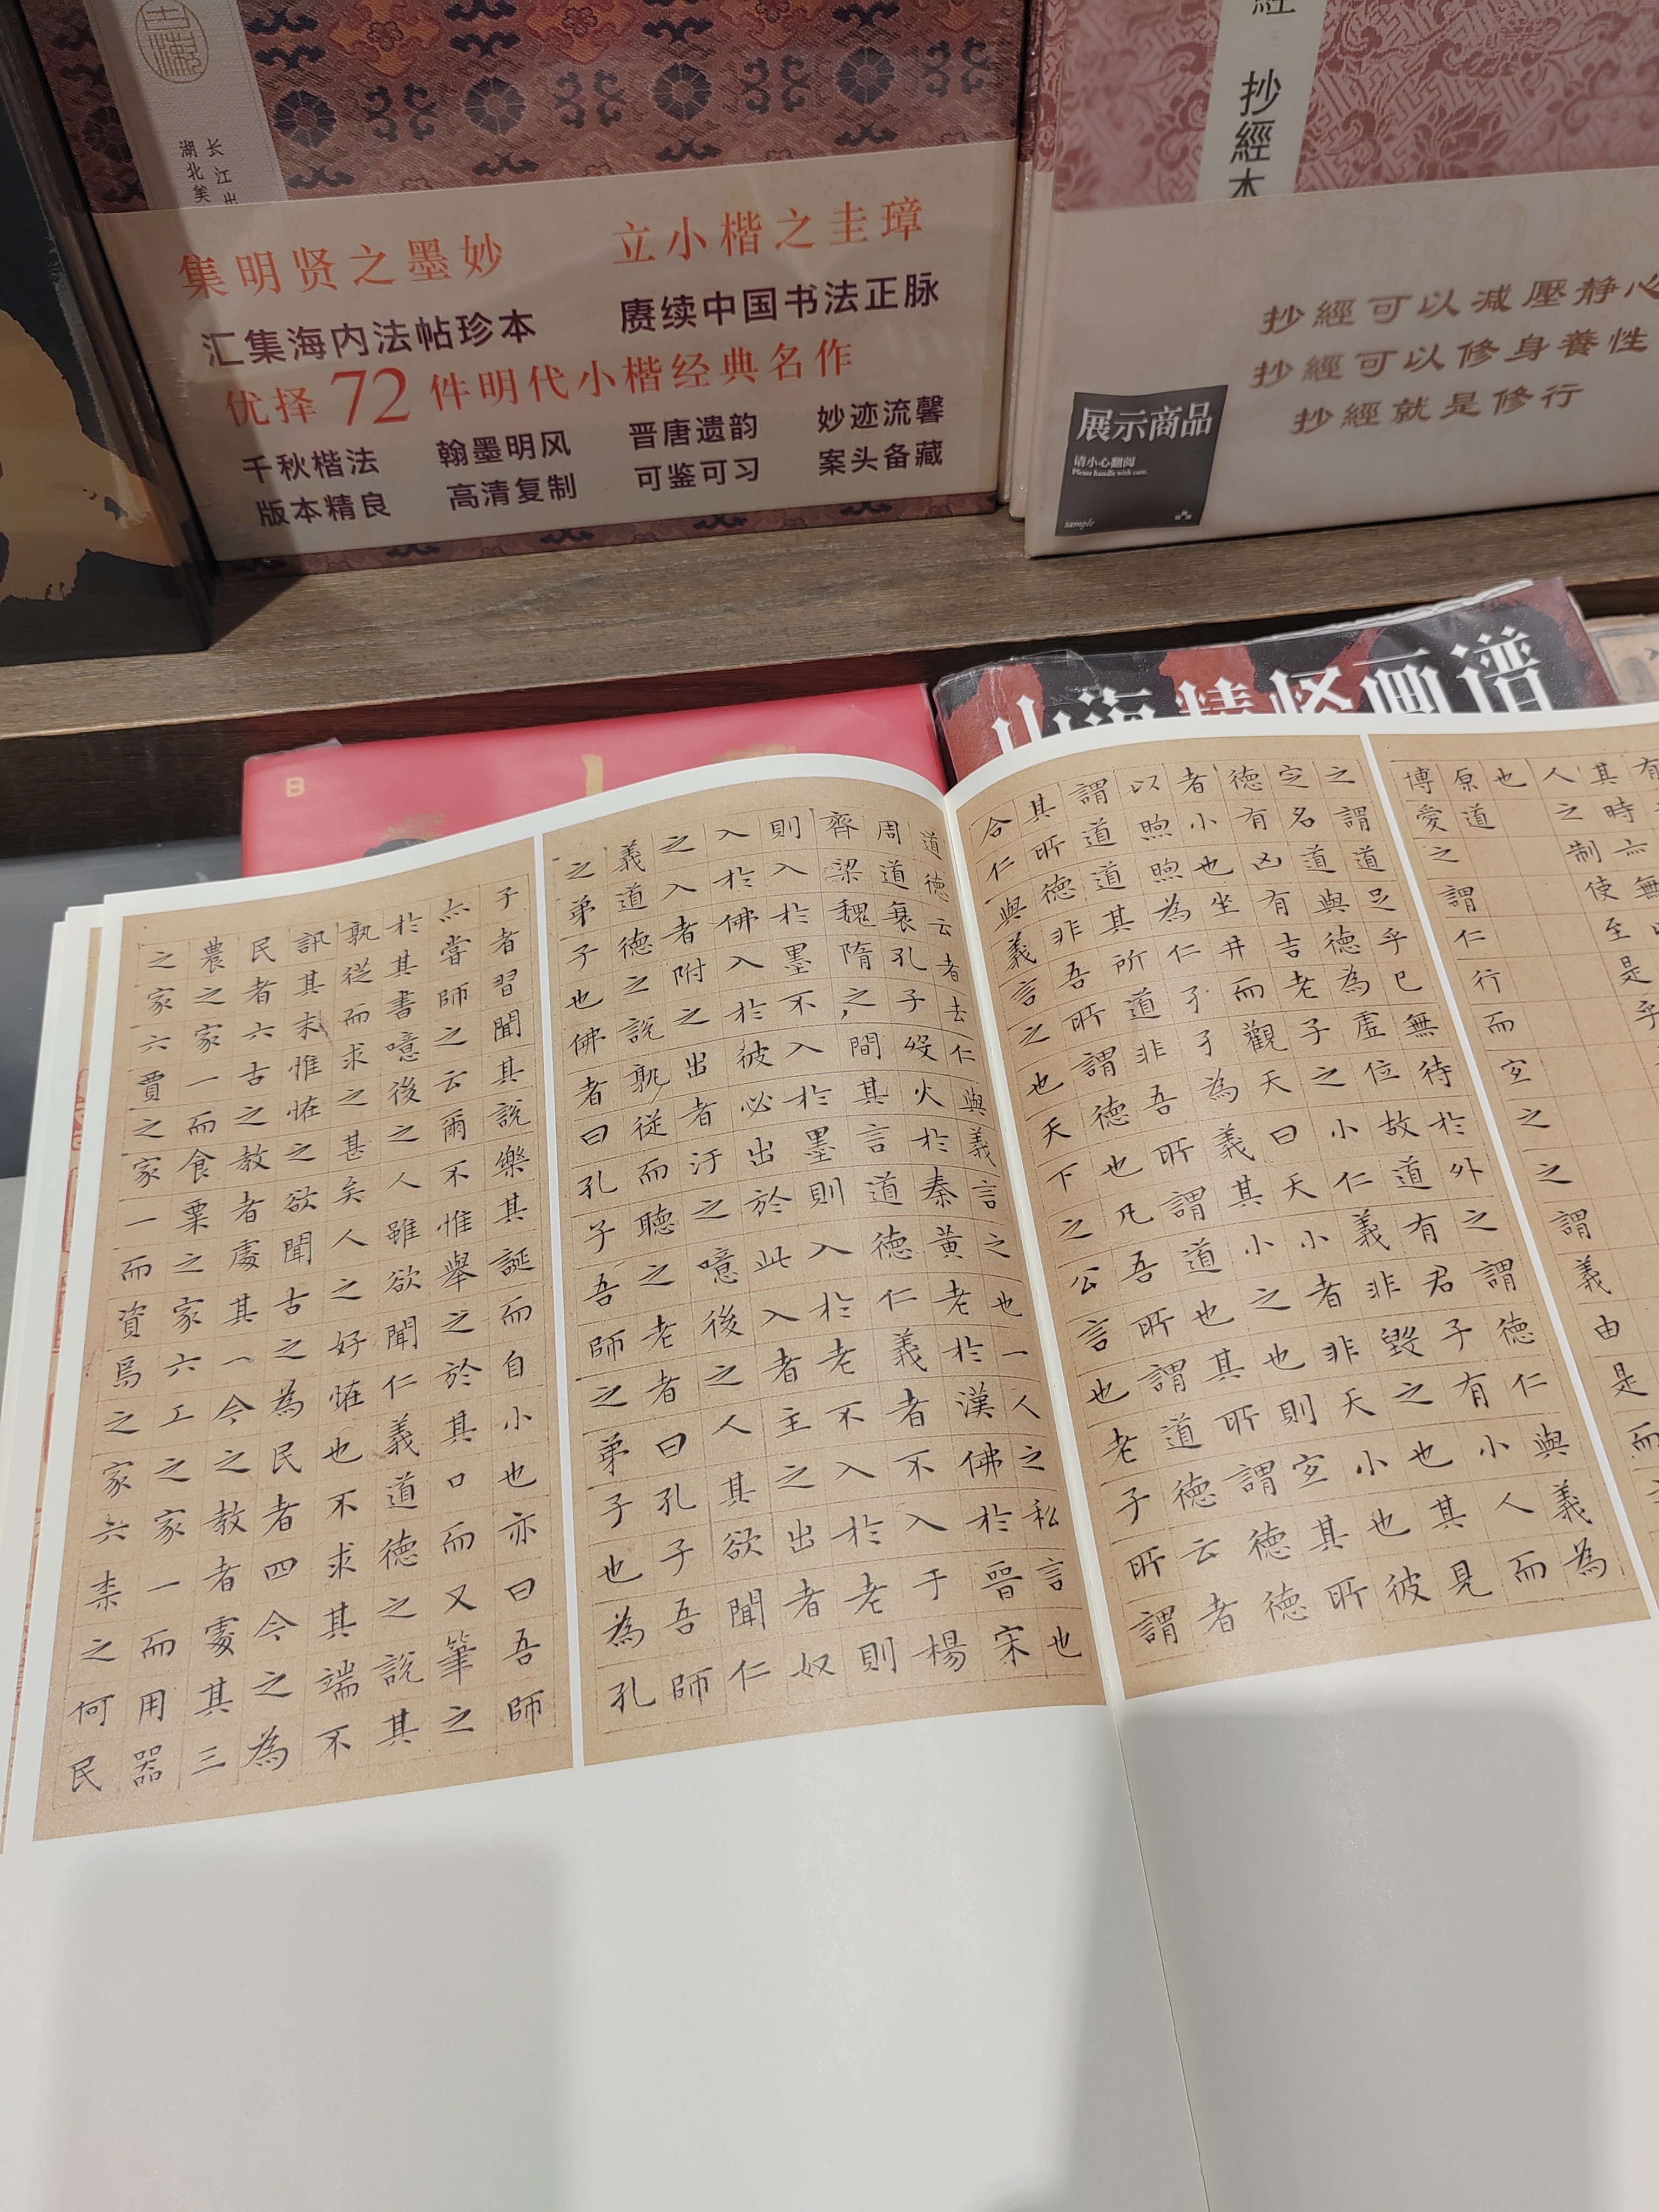 长江出
湖北美
集明贤之墨妙 立小楷之圭璋
汇集海内法帖珍本 赓续中国书法正脉
优择72件明代小楷经典名作
千秋楷法 翰墨明风 晋唐遗韵 妙迹流馨
版本精良 高清复制 可鉴可习 案头备藏
經 抄經本
抄經可以减壓静心
抄經可以修身養性
抄經就是修行
展示商品
请小心翻阅
Please handle with care.
sample
山海精怪画谱
B
有
其時亦無
人之制使至是乎
也
原道
博愛之謂仁行而宜之之謂義由是而
之謂道足乎已無待於外之謂德仁與義為
定名道與德為虛位故道有君子有小人而
德有凶有吉老子之小仁義非毀之也其見
者小也坐井而觀天曰天小者非天小也彼
以煦煦為仁孑孑為義其小之也則宜其所
謂道道其所道非吾所謂道也其所謂德德
其所德非吾所謂德也凡吾所謂道德云者
合仁與義言之也天下之公言也老子所謂
道德云者去仁與義言之也一人之私言也
周道衰孔子歿火於秦黃老於漢佛於晉宋
齊梁魏隋之間其言道德仁義者不入于楊
則入於墨不入於墨則入於老不入於老則
入於佛入於彼必出於此入者主之出者奴
之入者附之出者汙之噫後之人其欲聞仁
義道德之說孰從而聽之老者曰孔子吾師
之弟子也佛者曰孔子吾師之弟子也為孔
子者習聞其說樂其誕而自小也亦曰吾師
亦嘗師之云爾不惟舉之於其口而又筆之
於其書噫後之人雖欲聞仁義道德之說其
孰從而求之甚矣人之好怪也不求其端不
訊其末惟怪之欲聞古之為民者四今之為
民者六古之教者處其一今之教者處其三
農之家一而食粟之家六工之家一而用器
之家六賈之家一而資焉之家六柰之何民